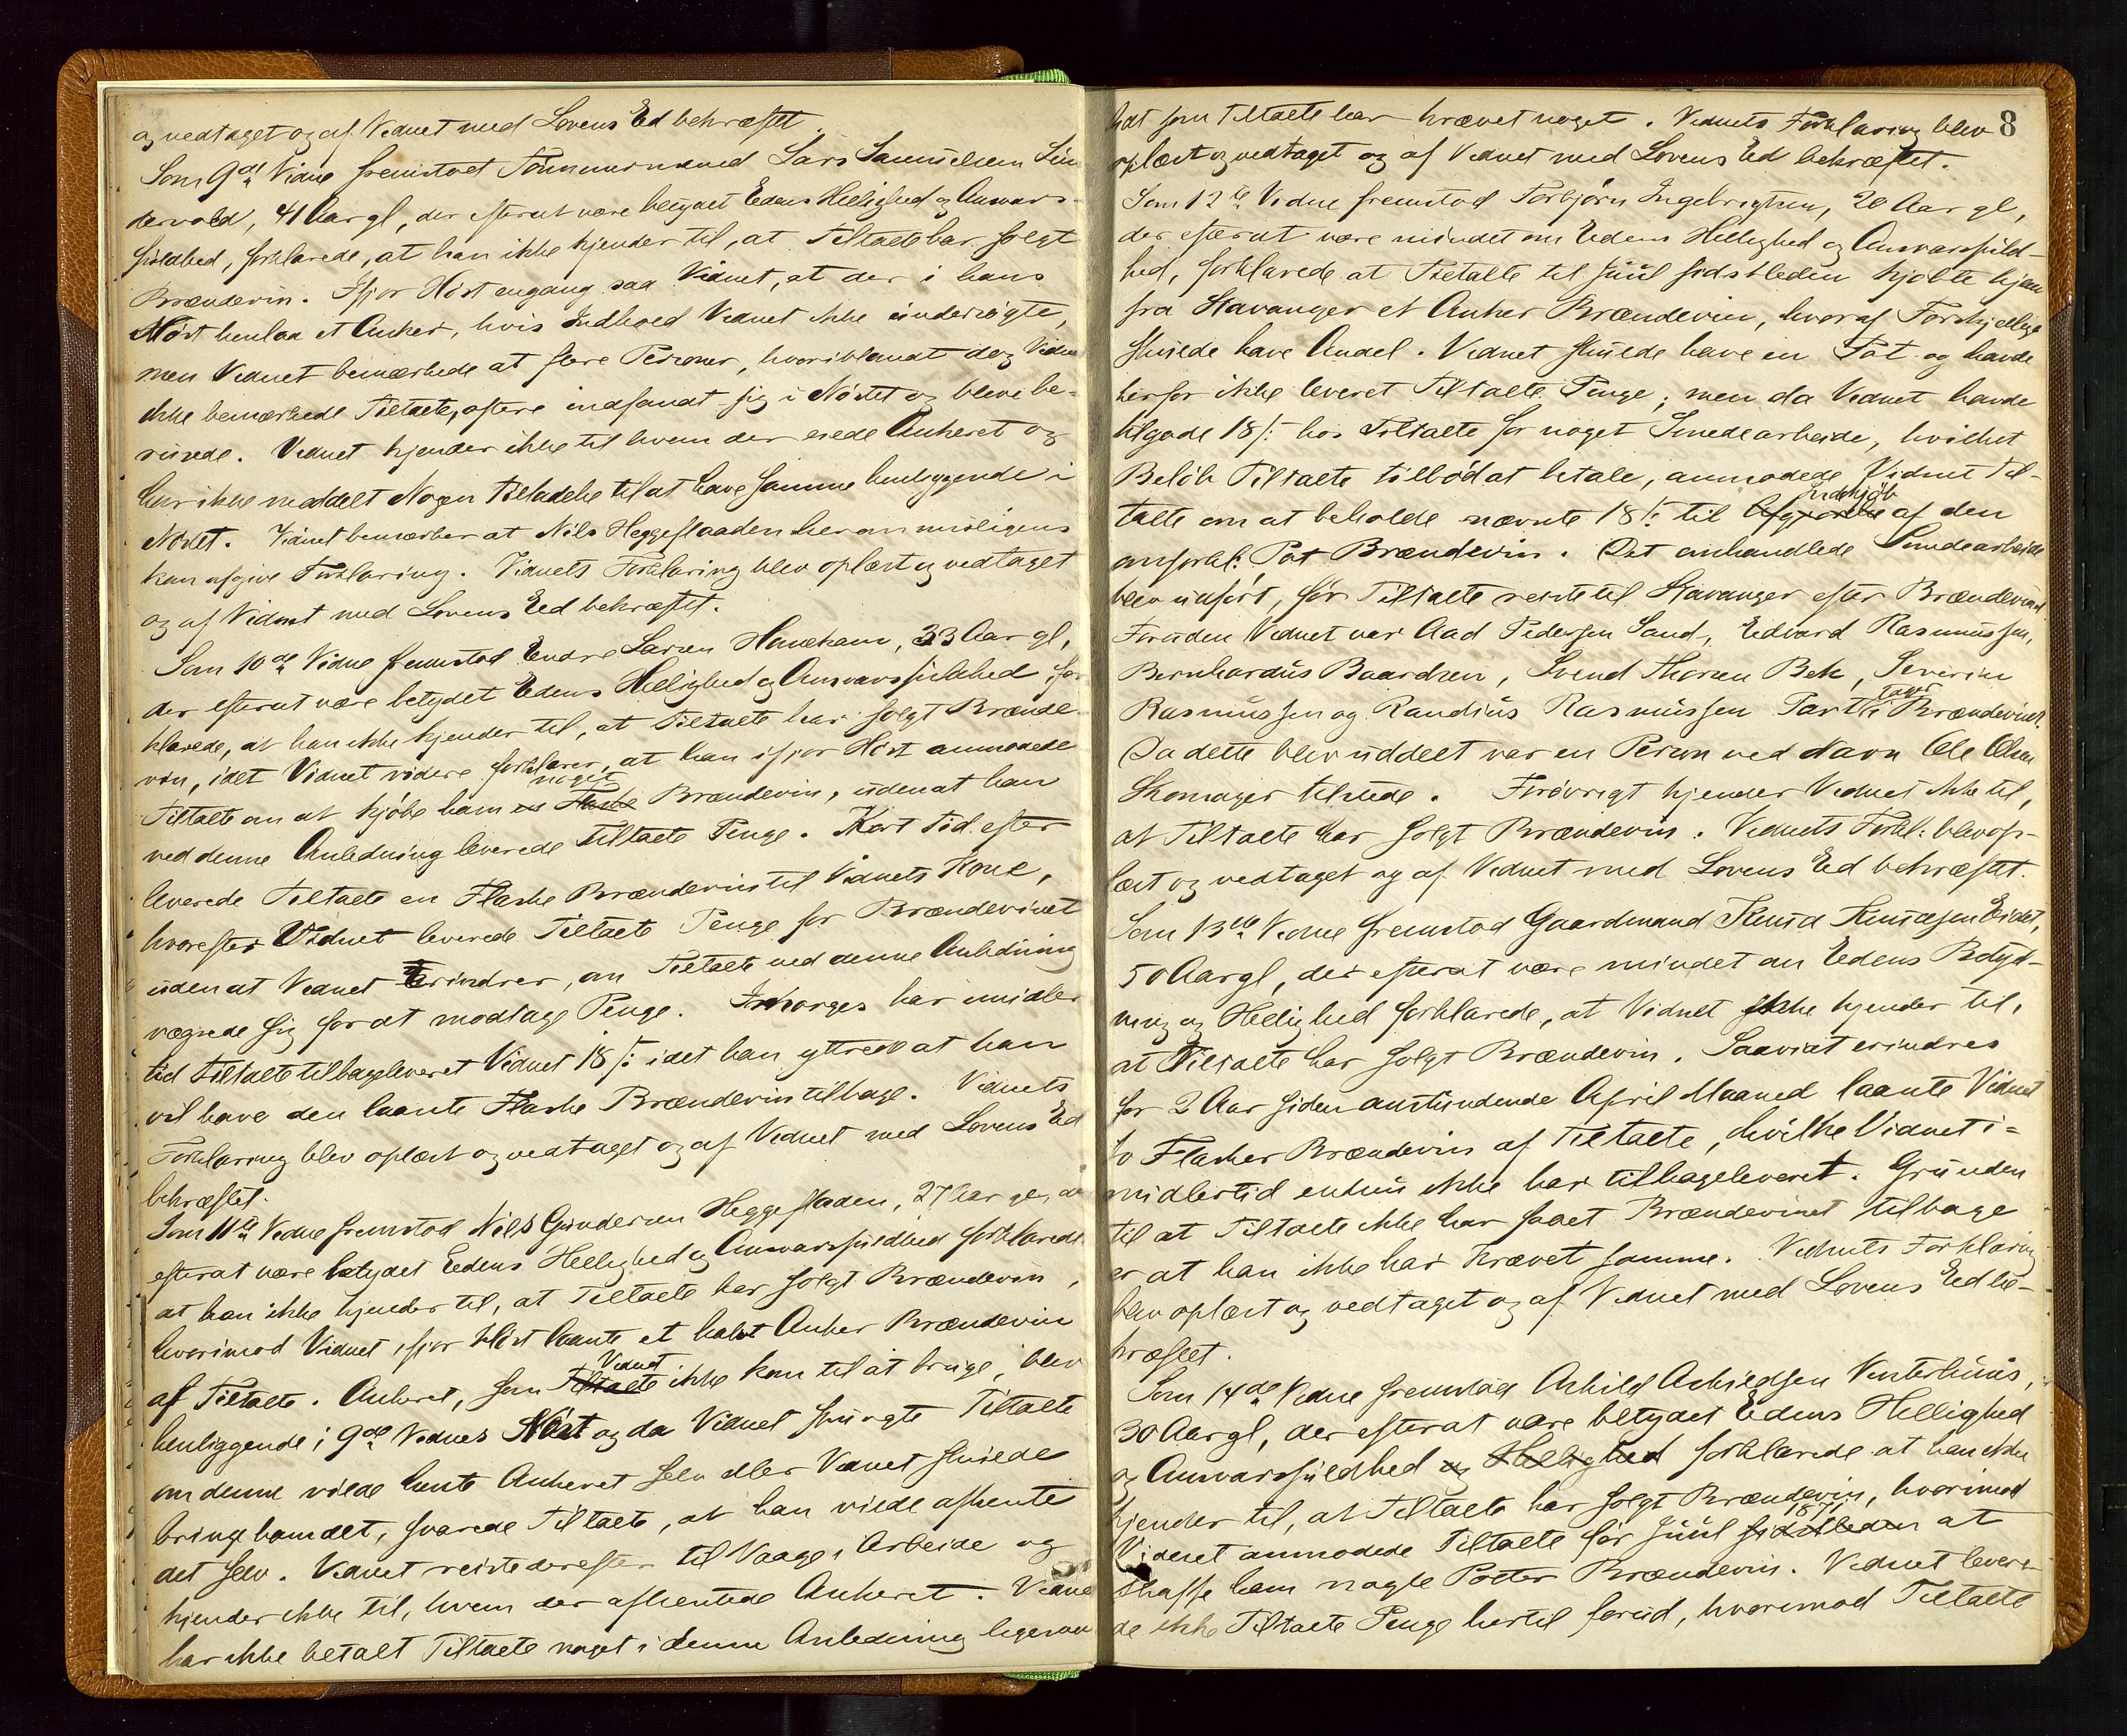 og vedtaget og af Vidnet med Lovens Ed bekræftet.
Som 9de Vidne fremstod Tømmermand Lars Samuelsen Sin
dervold, 41 Aar gl, der efterat være betydet Edens Hellighed og Ansvars-
fuldhed, forklarede, at han ikke kjender til, at Tiltalte har solgt
Brændevin. Ifjor Høst engang saa Vidnet, at der i hans
Nøst henlaa et Anker, hvis Indhold Vidnet ikke undersøgte,
men Vidnet bemærkede at flere Personer, hvoriblandt dog Vidnet
ikke bemærkede Tiltalte, oftere indfandt sig i Nøstet og bleve be-
rusede. Vidnet kjender ikke til hvem der eiede Ankeret og
har ikke meddelt Nogen Tilladelse til at have samme henliggende i
Nøstet. Vidnet bemærker at Nils Heggestaaden herom muligens
kan afgive Forklaring. Vidnets Forklaring blev oplæst og vedtaget
og af Vidnet med Lovens Eed bekræftet.
Som 10de Vidne fremstod Endre Larsen 33 Aar gl,
der efterat være betydet Edens Hellighed og Ansvarsfuldhed for
klarede, at han ikke kjender til, at Tiltalte har solgt Brænde
vin, idet Vidnet videre forklarer, at han ifjor Høst anmodede
Tiltalte om at kjøbe ham en Flaske noget Brændevin, uden at han
ved denne Anledning leverede Tiltalte Penge. Kort Tid efter
leverede Tiltalte en Flaske Brændevin til Vidnets Kone,
hvorefter Vidnet leverede Tiltalte Penge for Brændevinet
uden at Vidnet erindrer, om Tiltalte ved denne Anledning
vægrede sig for at modtage Penge. Imorges har imidler
tid Tiltalte tilbageleveret Vidnet 18 s: idet han yttrede at han
vil have den laante Flaske Brændevin tilbage. Vidnets
Forklaring blev oplæst og vedtaget og af Vidnet med Lovens Ed
bekræftet.
Som 11te Vidne fremstod Nils Gundersen Heggestaden, 27 Aar gl, der
efterat være betydet Eedens Hellighed og Ansvarsfuldhed forklarede
at han ikke kjender til, at Tiltalte har solgt Brændevin,
hvorimod Vidnet ifjor Høst laante et halvt Anker Brændevin
af Tiltalte. Ankeret, som Tiltalte Vidnet ikke kom til at bruge, blev
henliggende i 9de Vidnes Nøst og da Vidnet spurgte Tiltalte
om denne vilde hente Ankeret selv eller Vidnet skulde
bringe ham det, svarede Tiltalte, at han vilde afhente
det selv. Vidnet reiste derefter til Vaage i Arbeide og
kjender ikke til, hvem der afhentede Ankeret. Vidne
har ikke betalt Tiltalte noget i denne Anledning ligesaa
8
lidt som Tiltalte har krævet noget. Vidnets Forklaring blev
oplæst og vedtaget og af Vidnet med Lovens Ed bekræftet.
Som 12te Vidne fremstod Torbjørn Ingebrigtsen, 20 Aar gl,
der efterat være mindet om Eedens Hellighed og Ansvarsfuld-
hed, forklarede at Tiltalte til Juul sidstleden kjøbte hjem
fra Stavanger et Anker Brændevin, hvoraf Forskjellige
skulde have Andel. Vidnet skulde have en Pot og havde
herfor ikke leveret Tiltalte Penge; men da Vidnet havde
tilgode 18 s: hos Tiltalte for noget Smedearbeide, hvilket
Beløb Tiltalte tilbød at betale, anmodede Vidnet Til-
talte om at beholde nævnte 18 s: til Afgjørelse Indkjøb af den
omforkl: Pot Brændevin. Det omhandlede Smedearbeide
blev udført, før Tiltalte reiste til Stavanger efter Brændevinet.
Foruden Vidnet var Aad Pedersen Sand, Edvard Rasmussen,
Bernhardus Baardsen, Svend Thorsen Bek, Severin
Rasmussen og Randius Rasmussen Part tager i Brændevinet.
Da dette blev uddelt var en Person ved Navn Ole Olsen
Skomager tilstede. Forøvrigt kjender Vidnet ikke til,
at Tiltalte har solgt Brændevin. Vidnets Forkl: blev op-
læst og vedtaget og af Vidnet med Lovens Eed bekræftet.
Som 13de Vidne fremstod Gaardmand Knud Knudsen Eidet,
50 Aar gl, der efterat være mindet om Eedens Betyd-
ning og Hellighed forklarede, at Vidnet ikke kjender til,
at Tiltalte har solgt Brændevin. Saavidt erindres
for 2 Aar siden anstundende April Maaned laante Vidnet
to Flasker Brændevin af Tiltalte, hvilke Vidnet i-
midlertid endnu ikke har tilbageleveret. Grunden
til at Tiltalte ikke har faaet Brændevinet tilbage
er at han ikke har krævet samme. Vidnets Forklaring
blev oplæst og vedtaget og af Vidnet med Lovens Eed be-
kræftet.
Som 14de Vidne fremstod Askild Askildsen Vinterhuus,
30 Aar gl, der efterat være betydet Edens Hellighed
og Ansvarsfuldhed og Hellighed forklarede at han ikke
kjender til, at Tiltalte har solgt Brændevin, hvorimod
Vidnet anmodede Tiltalte før Juul sidstleden 1871 at
skaffe ham nogle Potter Brændevin. Vidnet levere-
de ikke Tiltalte Penge hertil forud, hvorimod Tiltalte